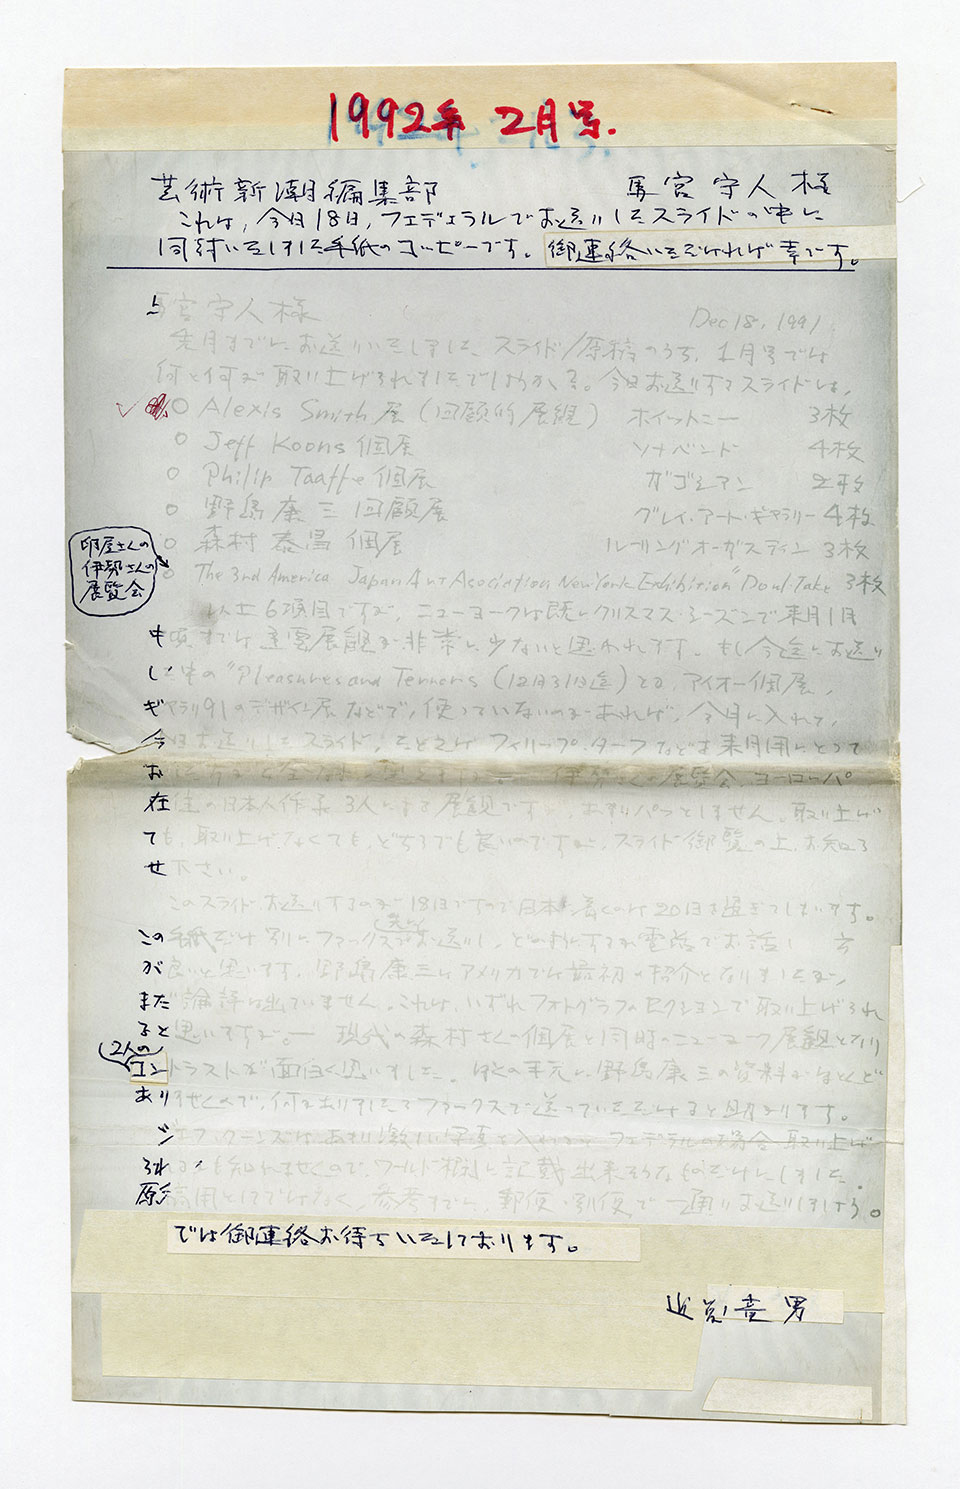 1992年 2月号.
芸術新潮編集部 馬宮守人様
これは,今日18日,フェデラルでお送りしたスライドの中に
同封いたしました手紙のコッピーです。御連絡いただければ幸です。
馬宮守人様
Dec 18, 1991
先月までにお送りいたしました、スライド/原稿のうち、1月号では
何と何が取り上げられましたでしょうか。今日お送りするスライドは、
○ Alexis Smith 展(回顧的展観) ホイットニー 3枚
○ Jeff Koons 個展 ソナベンド 4枚
○ Philip Taaffe 個展 ガゴシアン 2枚
○ 野島康三 回顧展 グレイ・アート・ギャラリー 4枚
○ 森村泰昌 個展 ルーリングオーガスティン 3枚
印屋さんの
伊勢さんの
展覧会
○ The 3rd America Japan Art Asociation New York Exhibition "Doul Take 3枚
以上6項目ですが、ニューヨークは既にクリスマス・シーズンで来月1日
頃までは重要展観が非常に少ないと思われます。もし今迄にお送り
した中の "Pleasures and Terrors (12月31日迄)とか、アイオー個展,
ギャラリ91のデザイン展などで、使っていないのがあれば、今月に入れて,
今日お送りしたスライド,たとえばフィリップ・ターフなどは来月用にとって
伊勢さんの展覧会、ヨーロッパ
在住の日本人作家3人による展観ですが、あまりパッとしません。取り上げ
ても,取り上げなくても,どちらでも良いのですが、スライド御覧の上,お知ら
せ下さい。
このスライド、お送りするのが18日ですので日本に着くのは20日を過ぎてしまいます。
この手紙だけ別にファックスでお送りし、
が良いと思います。野島康三はアメリカでは最初の紹介となりましたが,
まだ論評は出ていません。これは、いずれフォトグラフのセクションで取り上げられ
ると思いますが、― 現代の森村さんの個展と同時のニューヨーク展観となり
(2人の
コントラストが面白く思いました。僕の手元に野島康三の資料がほとんど
ありませんので、何かありましたらファックスで送っていただけると助かります。
ジェフ・クーンズはあまり激しい写真を入れると、フェデラルの場合取り上げ
られるかも知れませんので、ワールド欄に記載出来そうなものだけにしました。
原稿用としてではなく、参考までに、郵便・別便で一通りお送りしましょう。
では御連絡お待ちいたしております。
近藤竜男